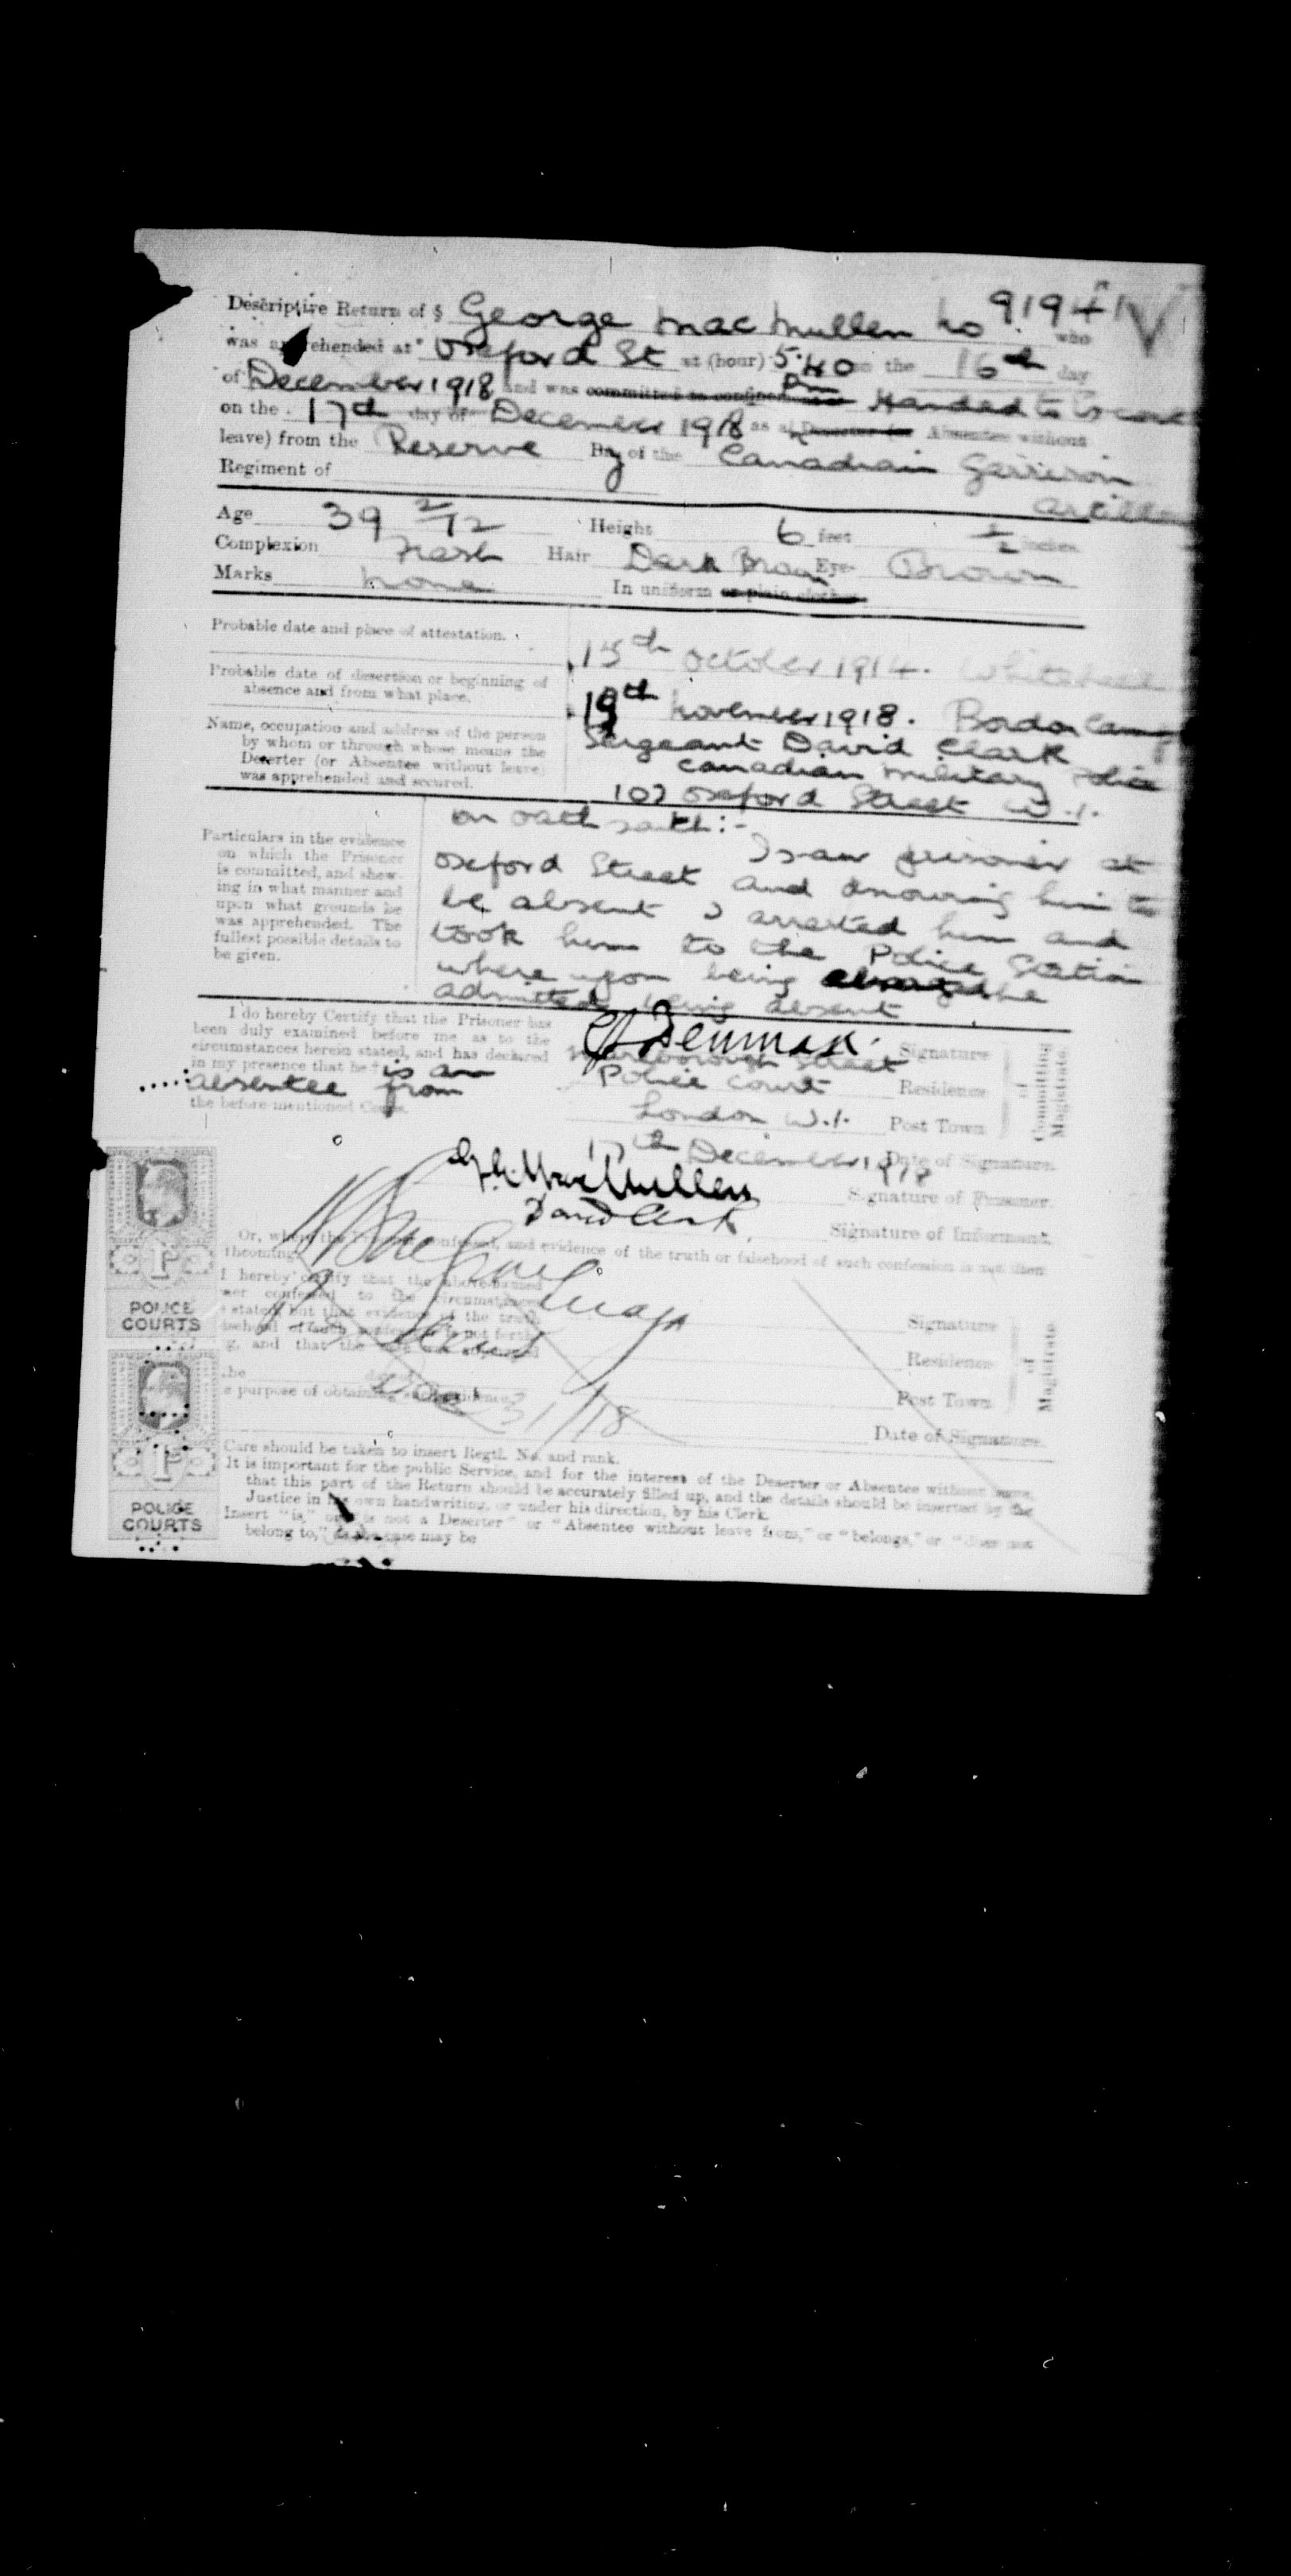 Descriptive Return of § George MacMullen No 91941 who
was apprehended at Oxford St at (hour) 5.40 pm on the 16th day
of December 1918 and was committed to confinement Handed to Escort
on the 17th day of December 1918 as a Deserter (or Absentee without
leave) from the Reserve By of the Canadian Garrison
Regiment of Artillery
Age 39 2/12 Height 6 feet ½ inches
Complexion Fresh Hair Dark Brown Eyes Brown
Marks None In uniform or plain clothes
Probable date and place of attestation. 15th October 1914. Whitehall
Probable date of desertion or beginning of
absence and from what place. 19th November 1918. Bordon Camp
Name, occupation and address of the person
by whom or through whose means the
Deserter (or Absentee without leave)
was apprehended and secured.
Sergeant David Clark
Canadian Military Police
107 Oxford Street W.1.
Particulars in the evidence
on which the Prisoner
is committed, and shew-
ing in what manner and
upon what grounds he
was apprehended. The
fullest possible details to
be given.
on oath saith:-
I saw prisoner at
Oxford Street and knowing him to
be absent I arrested him and
took him to the Police Station
where upon being charged he
admitted being absent
I do hereby Certify that the Prisoner has
been duly examined before me as to the
circumstances herein stated, and has declared
in my presence that he is an
absentee from
the before-mentioned Corps.
Signature
Marlborough Street
Police Court Residence
London W.1. Post Town
of Committing Magistrate
17th December 1918 Date of Signature.
G. MacMullen Signature of Prisoner.
David Clark Signature of Informant.
Or, where the confessed, and evidence of the truth or falsehood of such confession is not then
thcoming.
I hereby certify that the above-named
ner confessed to the circumstances
stated, but that evidence of the truth
of such is not forth
g, and that the
be
e purpose of obtaining such evidence.
Signature
Residence
Post Town
of Magistrate
Date of Signature.
31/18
POLICE
COURTS
POLICE
COURTS
Care should be taken to insert Regtl. No. and rank.
It is important for the public Service, and for the interest of the Deserter or Absentee without leave,
that this part of the Return should be accurately filled up, and the details should be inserted by the
Justice in his own handwriting, or under his direction, by his Clerk.
Insert "is," or "is not a Deserter" or "Absentee without leave from," or "belongs," or "does not
belong to," as the case may be